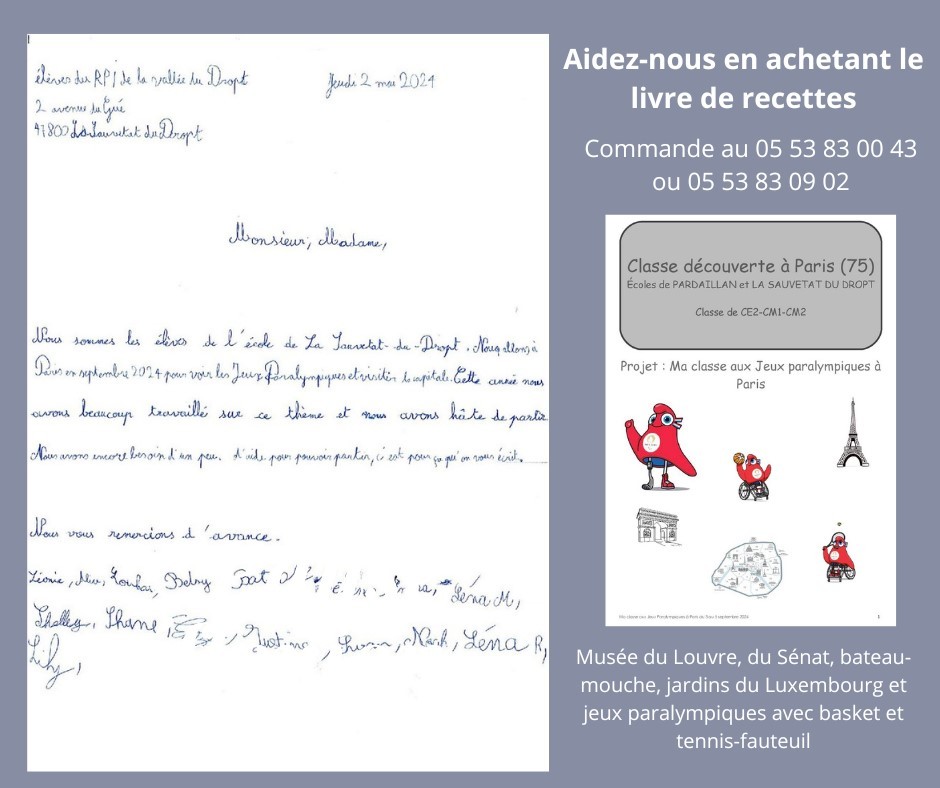 élèves du RPI de la vallée du Dropt
Jeudi 2 mai 2024
2 avenue du Gué
47800 La Sauvetat du Dropt
Monsieur, Madame,
Nous sommes les élèves de l'école de La Sauvetat-du-Dropt. Nous allons à
Paris en septembre 2024 pour voir les Jeux Paralympiques et visiter la capitale. Cette année nous
avons beaucoup travaillé sur ce thème et nous avons hâte de partir.
Nous avons encore besoin d'un peu d'aide pour pouvoir partir, c'est pour ça qu'on vous écrit.
Nous vous remercions d'avance.
Léonie, Betsy
Léna M,
Shelley, Shane, Justine, Mark, Léna R,
Lily,
Aidez-nous en achetant le
livre de recettes
Commande au 05 53 83 00 43
ou 05 53 83 09 02
Classe découverte à Paris (75)
Écoles de PARDAILLAN et LA SAUVETAT DU DROPT
Classe de CE2-CM1-CM2
Projet : Ma classe aux Jeux paralympiques à
Paris
1
Musée du Louvre, du Sénat, bateau-
mouche, jardins du Luxembourg et
jeux paralympiques avec basket et
tennis-fauteuil